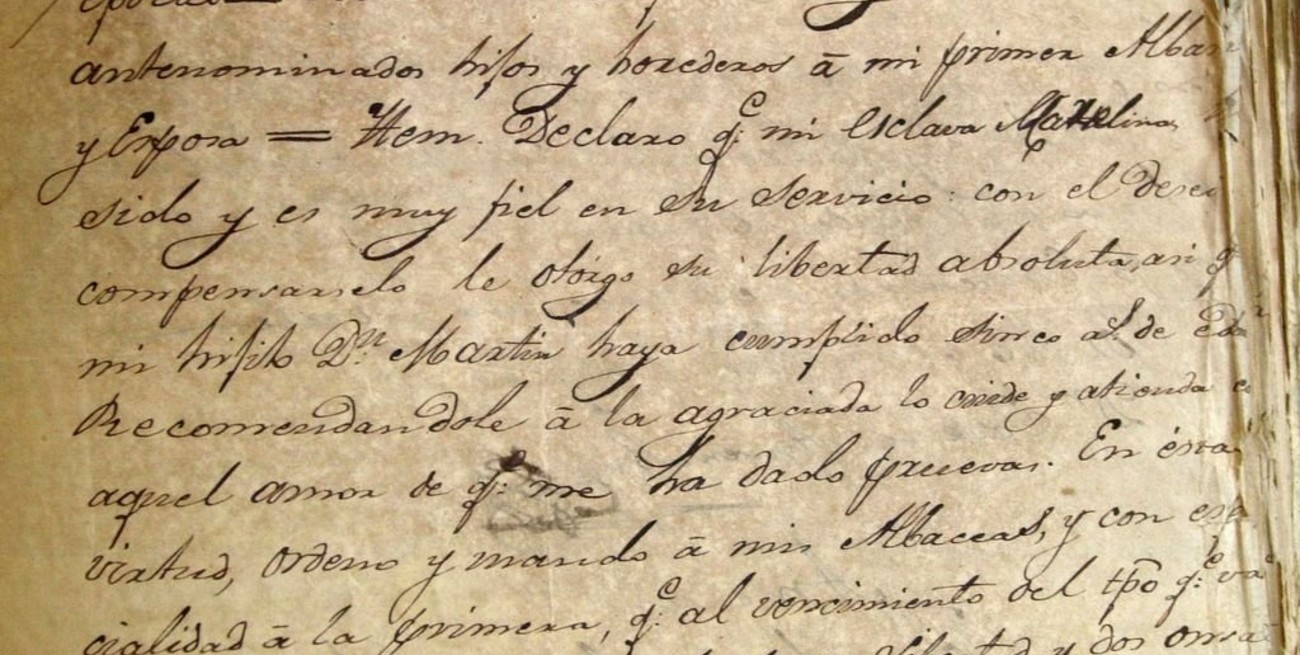 antenominados hijos y horederos â mi primer Alba
y Esposa = Item. Declaro q.e mi Esclava Catalina
sido y es muy fiel en su servicio: con el deseo
compensarselo le otorgo su libertad absoluta, asi q
mi hijito D.n Martin haya cumplido sinco a.s de Eda
Recomendandole â la agraciada lo cuide y atienda
aquel amor de q.e me ha dado pruevas. En ésta
virtud, ordeno y mando â mis Albaceas, y con esp
cialidad â la primera, q.e al vencimiento del tpô q.e va
Libertad y dos onsa